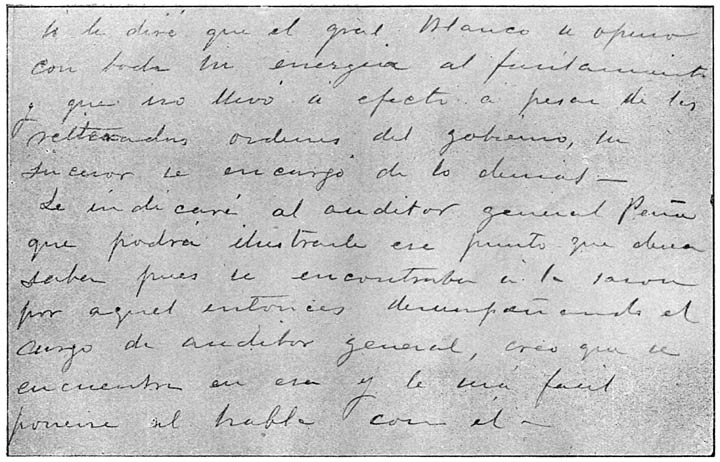 le diré que el gral Blanco se opuso
con toda su energia al fusilamiento
y que no llevó á efecto a pesar de las
reiteradas ordenes del gobierno, su
sucesor se encargó de lo demas —
Le indicaré al auditor general Peña
que podrá ilustrarle ese punto que desea
saber pues se encontraba á la sazon
por aquel entonces desempeñando el
cargo de auditor general, creo que se
encuentra en esa y le será facil
ponerse al habla con él —